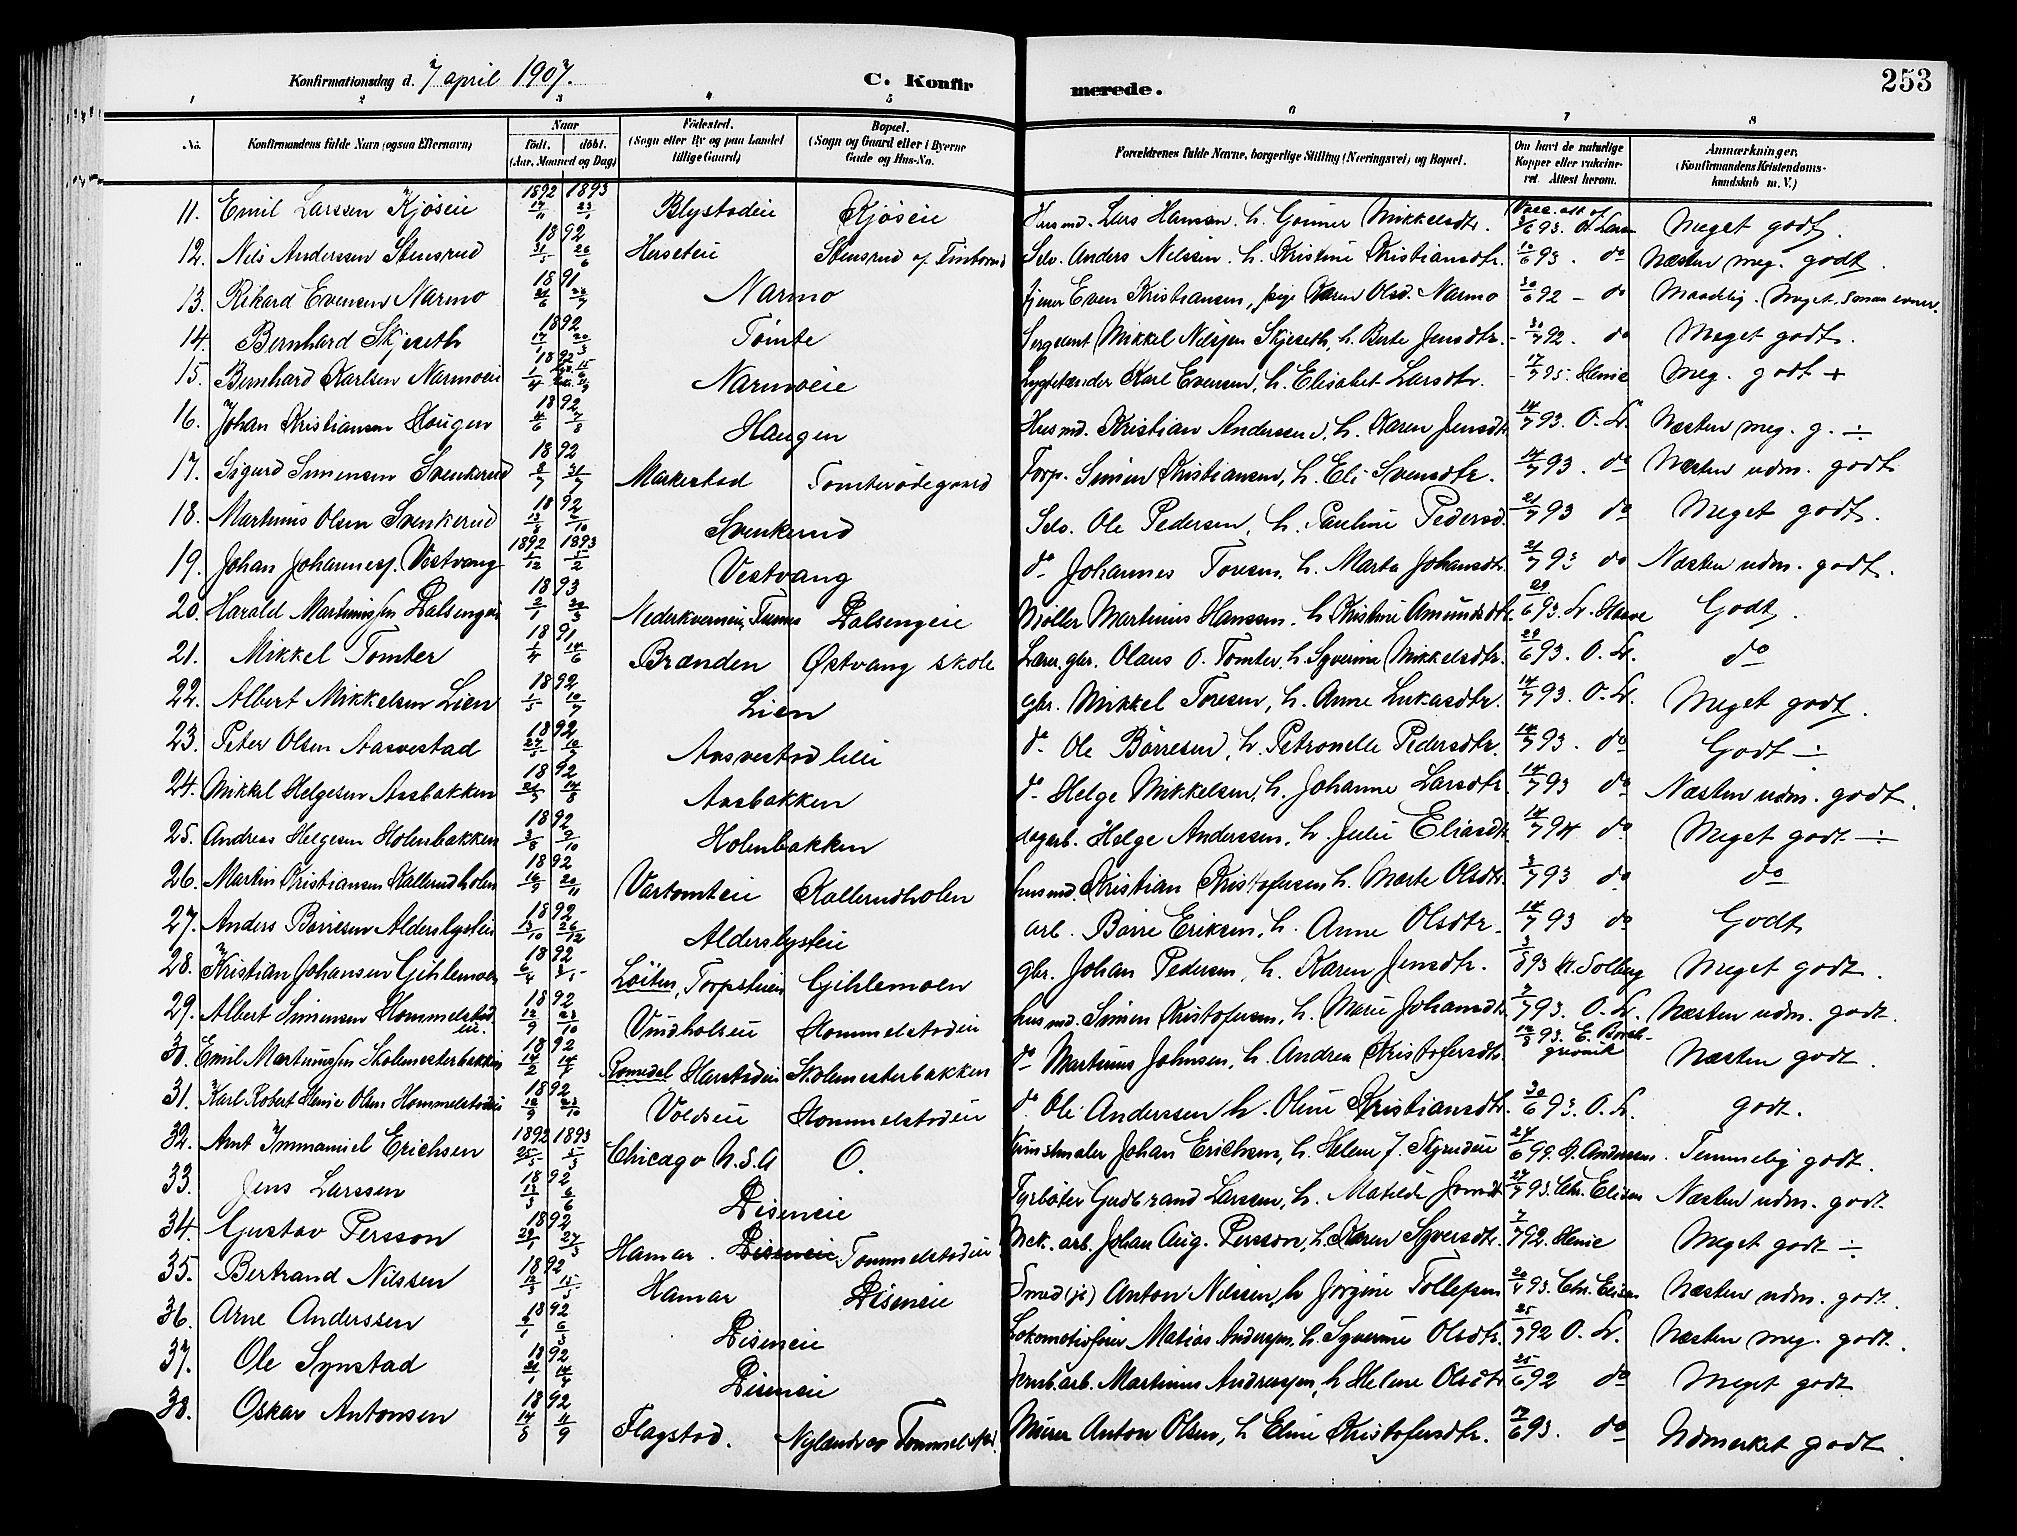 Konfirmationsdag d. 7 april 1907. C. Konfir merede. 253
1 2 3 4 5 6 7 8
No. Konfirmandens fulde Navn (ogsaa Efternavn) Naar født. døbt. (Aar, Maaned og Dag) Fødested. (Sogn eller By og paa Landet tillige Gaard) Bopæl. (Sogn og Gaard eller i Byerne Gade og Hus-No. Forældrenes fulde Navne, borgerlige Stilling (Næringsvei) og Bopæl. Om havt de naturlige Kopper eller vakcineret. Attest herom. Anmærkninger. (Konfirmandens Kristendomskundskab m. V.)
11. Emil Larssen Kjöseie 1892 17/11 1893 23/1 Blystadeie Kjöseie Husmd. Lars Hansen h. Gunner Mikkelsdtr. Vacc. att af 3/6 93. Meget godt.
12. Nils Anderssen Stensrud 1892 31/5 26/6 Herseteie Stensrud Selv. Anders Nilssen. h. Kristine Kristiansdtr. 10/6 93. do Næsten meg. godt.
13. Rikard Evensen Narmo 1891 21/6 Narmo tjener Even Kristiansen, pige Karen Olsd. Narmo 30/6 92 - do Maadelig. Meget smaa evner.
14. Bernhard Skjeseth 1892 17/1 20/3 Tomte Sergeant Mikkel Nilssen Skjeseth, h. Berte Jensdtr. 30/7 92. do Meget godt.
15. Bernhard Karlsen Narmoeie 1892 1/4 Narmoeie Lygtetænder Karl Evensen, h. Elisabet Larsdtr. 17/7 95. Henie Meg. godt +
16. Johan Kristiansen Haugen 1892 4/6 7/8 Haugen Husmd. Kristian Anderssen, h. Karen Jensdtr. 14/7 93. O. L. Næsten meg. g. ÷
17. Sigurd Simensen Svenkerud 1892 8/7 31/7 Markestad Tomterødegaard Torp. Simen Kristiansen, h. Eli Svensdtr. 14/7 93. do Næsten udm. godt
18. Martinus Olsen Svenkerud 1892 13/8 2/10 Svenkerud Selv. Ole Pedersen, h. Pauline Pedersd. 21/7 93 do Meget godt.
19. Johan Johanness. Vestvang 1892 1/12 1893 5/2 Vestvang do Johannes Toresen, h. Marta Johansdtr. 21/7 93 do Næsten udm. godt.
20. Harald Martinussen Dalsengeie 1893 2/1 30/3 Nederkverneie, Dalsengeie Møller Martinus Hanssen. h Kristine Amundsdtr. 29/6 93. Godt.
21. Mikkel Tomter 1891 1/4 14/6 Brænden Østvang skole Lærer, gbr. Olaus O. Tomter, h. Syverine Mikkelsdtr. 29/6 93. O. L. do
22. Albert Mikkelsen Lien 1892 1/5 10/7 Lien gbr. Mikkel Toresen, h. Anne Lukasdtr. 14/7 93. O. L. Meget godt.
23. Peter Olsen Aasvestad 1892 27/5 10/7 Aasvestad lille do Ole Börresen, h. Petronelle Pedersdtr. 14/7 93. do Godt ÷
24. Mikkel Helgesen Aasbakken 1892 14/8 Aasbakken do Helge Mikkelsen, h. Johanne Larsdtr. 14/7 93 do Næsten udm. godt.
25. Andreas Helgesen Holenbakken 1892 3/8 9/10 Holenbakken Helge Anderssen, h. Julie Eliasdtr. 14/7 94 do Meget godt ÷
26. Martin Kristiansen Kallerudholen 1892 16/9 20/11 Vartomteie Kallerudholen husmd. Kristian Kristofersen h. Marte Olsdtr. 3/7 93 do do
27. Anders Börresen Alderslysteie 1892 13/10 26/12 Alderslysteie arb. Börre Eriksen, h. Anne Olsdtr. 14/7 93 do Godt
28. Kristian Johansen Gihlemoen 1892 6/4 Löiten, Torpsteien Gihlemoen gbr. Johan Pedersen, h. Karen Jensdtr. 3/8 93 Solberg Meget godt.
29. Albert Simensen Hommelstadeie. 1892 12/9 23/10 Vindholseie Hommelstadeie husmd. Simen Kristofersen, h. Marie Johansdtr. 7/7 93. O. L. Næsten udm. godt.
30. Emil Martinussen Skolemesterbakken 1892 14/2 Romedal Harstadeie Skolemesterbakken do Martinus Johnsen, h. Andrea Kristofersdtr. 12/8 93. E. Borchgrevink Næsten godt.
31. Karl Robert Henie Olsen Hommelstadeie 1892 12/9 23/10 Voldseie Hommelstadeie do Ole Anderssen h. Oline Kristiansdtr. 30/6 93. O. L. godt.
32. Arnt Immanuel Erichsen 1892 25/5 1893 5/3 Chicago U.S.A O. Kunstmaler Johan Erichsen, h. Helene J. 24/6 99. Anderssen. Temmelig godt.
33. Jens Larssen 1892 13/3 6/6 Diseneie Fyrböter Gudbrand Larssen, h. Matilde 27/7 93. Chr. Elisen Næsten udm. godt.
34. Gustav Persson 1892 29/1 27/3 Hamar. Diseneie Tommelstadeie Mek. arb. Johan Aug. Persson, h. Karen Syversdtr. 7/7 92. Henie Meget godt ÷
35. Bertrand Nilssen 1892 12/3 15/5 Hamar Diseneie Smed (je) Anton Nilssen, h Jörgine Tollefsen 20/4 93. Chr. Elisen Næsten udm. godt.
36. Arne Anderssen 1892 2/1 6/3 Diseneie Lokomotivfører Matias Anderssen, h. Syverine Olsdtr. 25/7 92 O. L. Næsten meg. godt.
37. Ole Synstad 1892 21/1 Diseneie Jernb.arb. Martinus Andreassen, h Helene Olsdtr. 25/6 92 do Meget godt
38. Oskar Antonsen 1892 14/8 11/9 Flagstad. Nyland Murer Anton Olsen, h Eline Kristofersdtr. 17/6 93. do Udmerket godt.